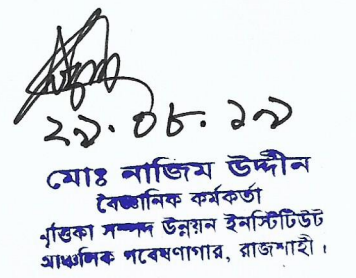 ২৯.০৮.১৯
মোঃ নাজিম উদ্দীন
বৈজ্ঞানিক কর্মকর্তা
মৃত্তিকা সম্পদ উন্নয়ন ইনস্টিটিউট
আঞ্চলিক গবেষণাগার, রাজশাহী।